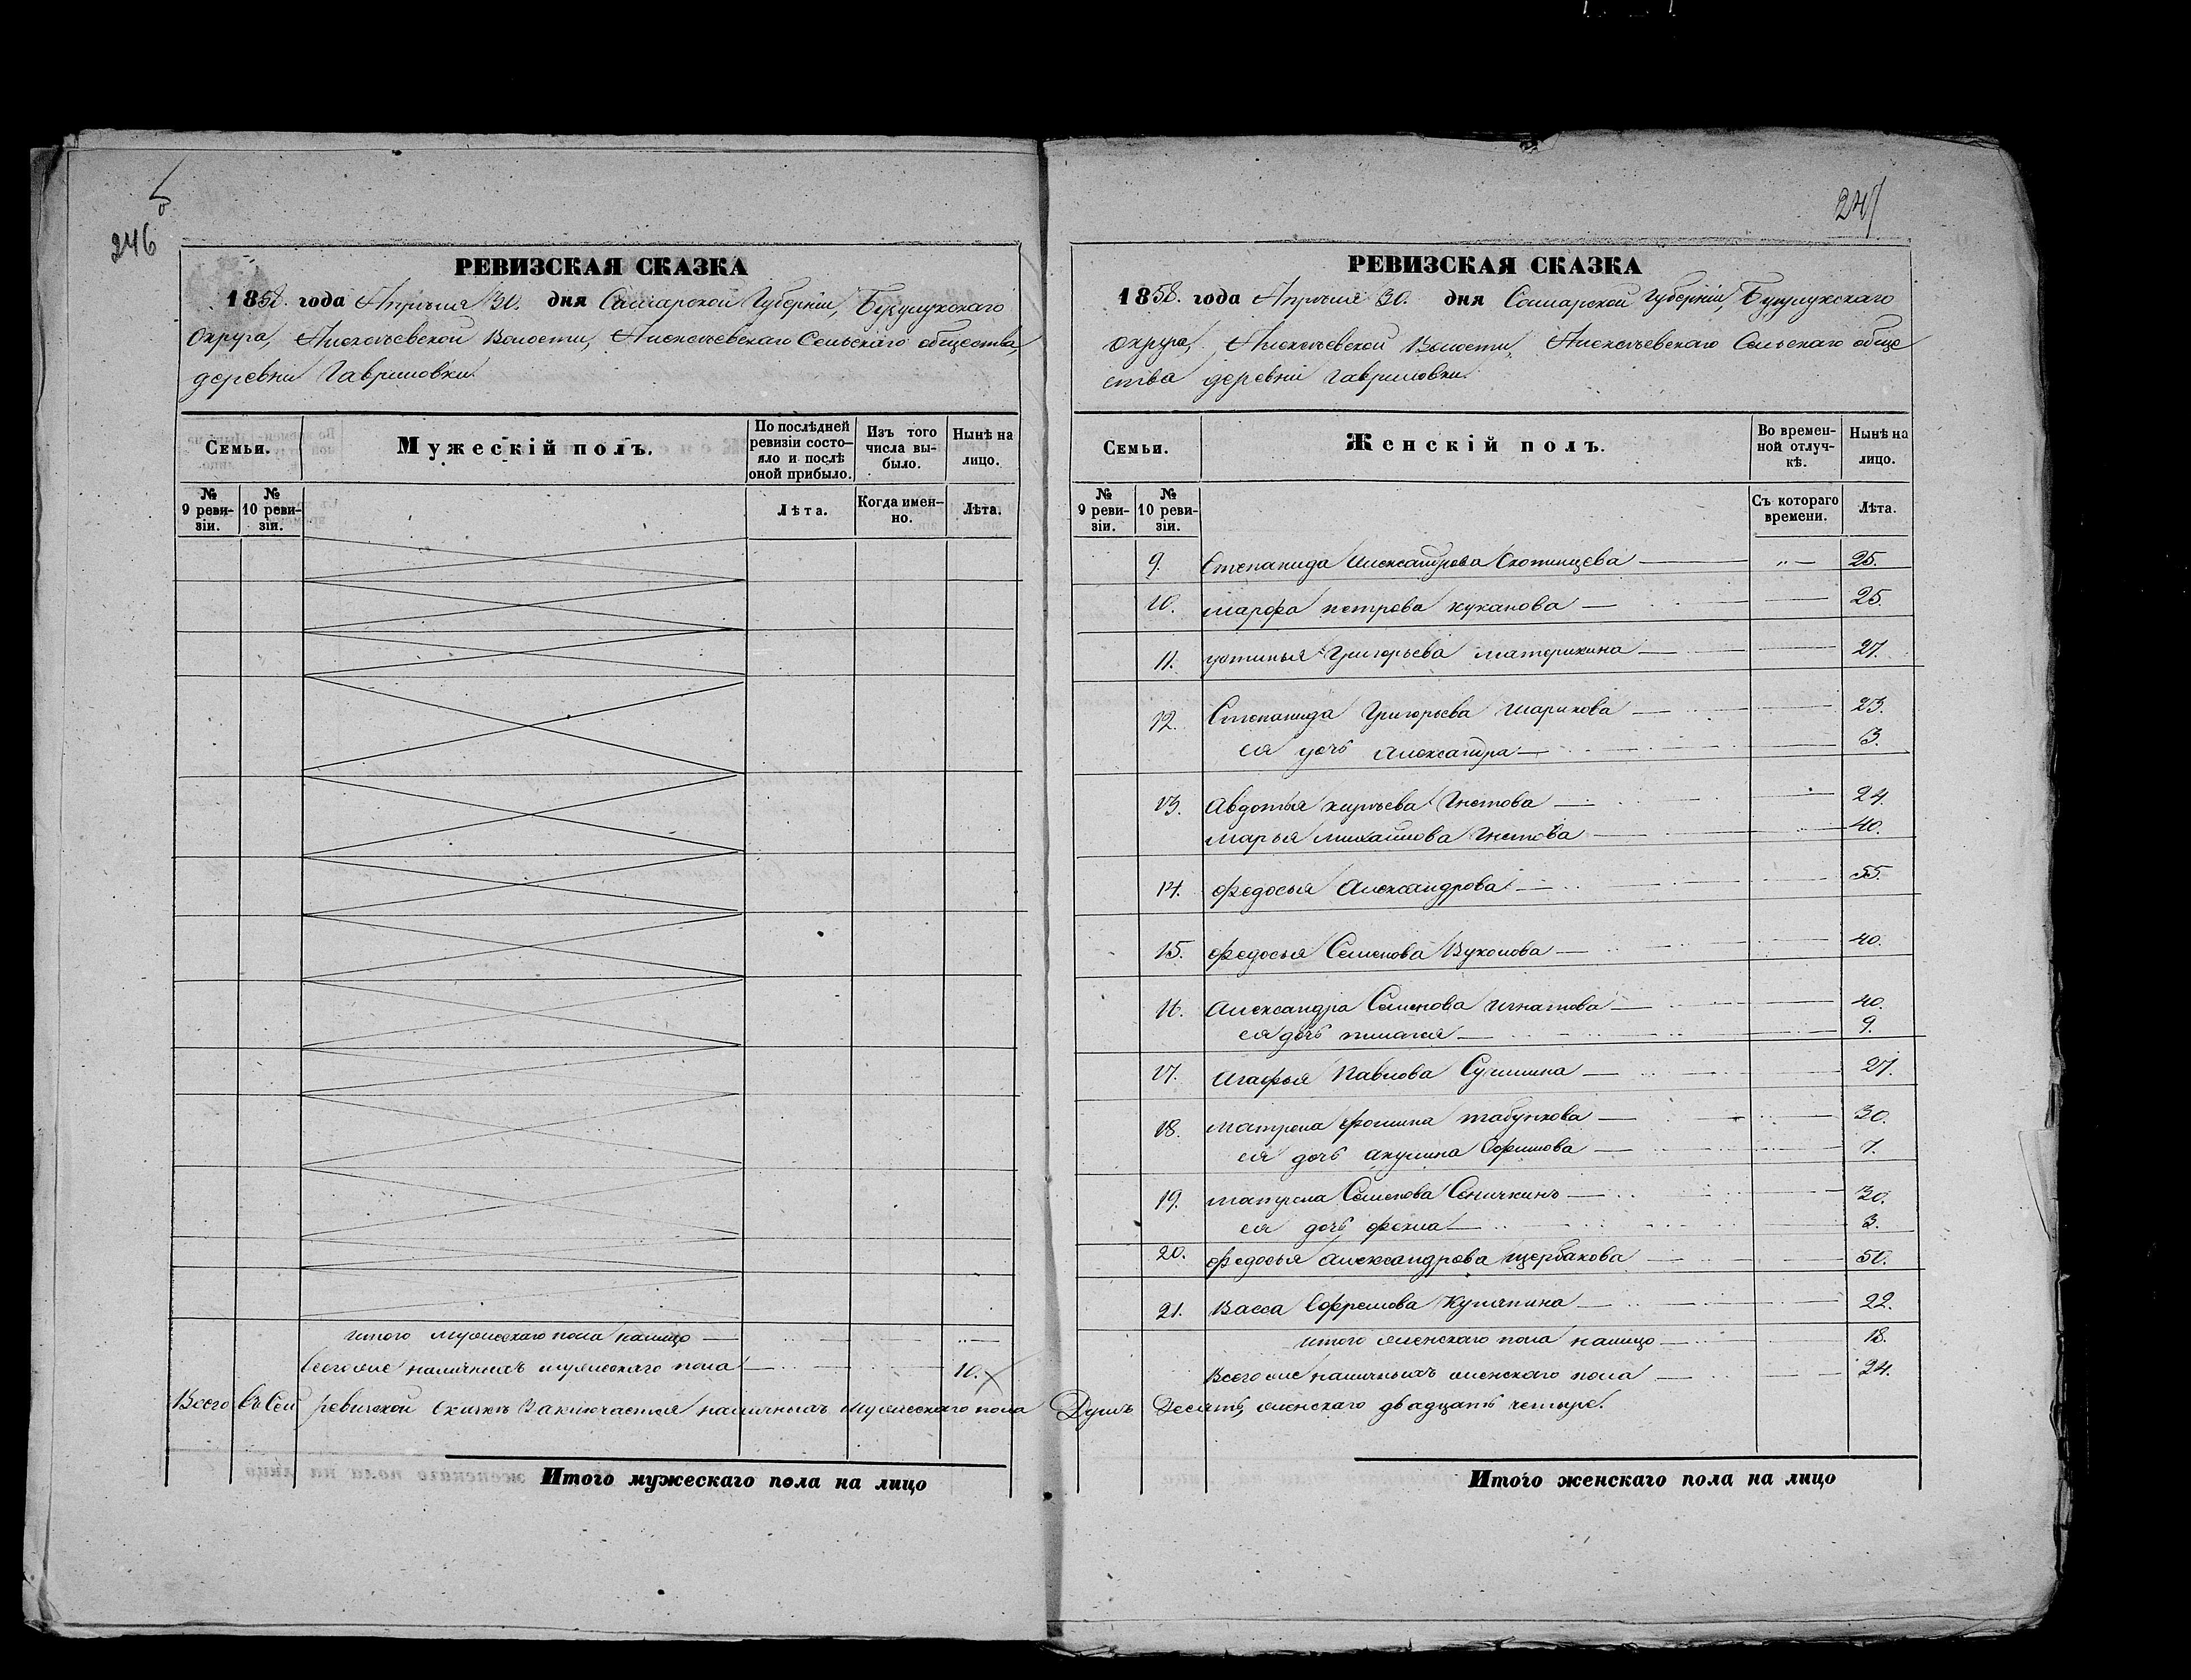 246
РЕВИЗСКАЯ СКАЗКА
1858. года Апрѣля 30. дня Самарской Губерніи, Бузулукскаго
Округа, Алексѣевской Волости, Алексѣевскаго Сельскаго общества,
деревни Гавриловки.
Семьи.
Мужескій полъ.
По послѣдней ревизіи состо-
яло и послѣ оной прибыло.
Изъ того числа вы-
было.
Нынѣ на лицо.
№ 9 реви-
зіи.
№ 10 реви-
зіи.
Лѣта.
Когда имен-
но.
Лѣта.
итого мужескаго пола налицо —
Всего же наличныхъ мужескаго пола — 10.
Всего въ сей ревизской скаскѣ заключается наличныхъ мужескаго пола
Итого мужескаго пола на лицо
247
РЕВИЗСКАЯ СКАЗКА
1858. года Апрѣля 30. дня Самарской Губерніи, Бузулукскаго
округа, Алексѣевской Волости, Алексѣевскаго Сельскаго обще
ства деревни Гавриловки.
Семьи.
Женскій полъ.
Во времен-
ной отлуч-
кѣ.
Нынѣ на лицо.
№ 9 реви-
зіи.
№ 10 реви-
зіи.
Съ котораго времени.
Лѣта.
9. Степанида Александрова — 25.
10. Марфа Петрова Куканова — 25.
11. Устинья Григорьева Материкина — 27.
12. Степанида Григорьева Шарикова — 23.
ея дочь Александра — 3.
13. Авдотья — 24.
Марья Михайлова — 40.
14. Федосья Александрова — 55.
15. Федосья Семенова Вуколова — 40.
16. Александра Семенова Игнатова — 40.
ея дочь Пилагея — 9.
17. Агафья Павлова — 27.
18. Матрена Фомина Табункова — 30.
ея дочь Акулина Ефимова — 7.
19. Матрена Семенова Сеничкинъ — 30.
ея дочь Фекла — 3.
20. Федосья Александрова Щербакова — 50.
21. Васса Ефремова Купряпина — 22.
итого женскаго пола налицо — 18.
Всего же наличныхъ женскаго пола — 24.
Душъ Десять, женскаго двадцать четыре.
Итого женскаго пола на лицо